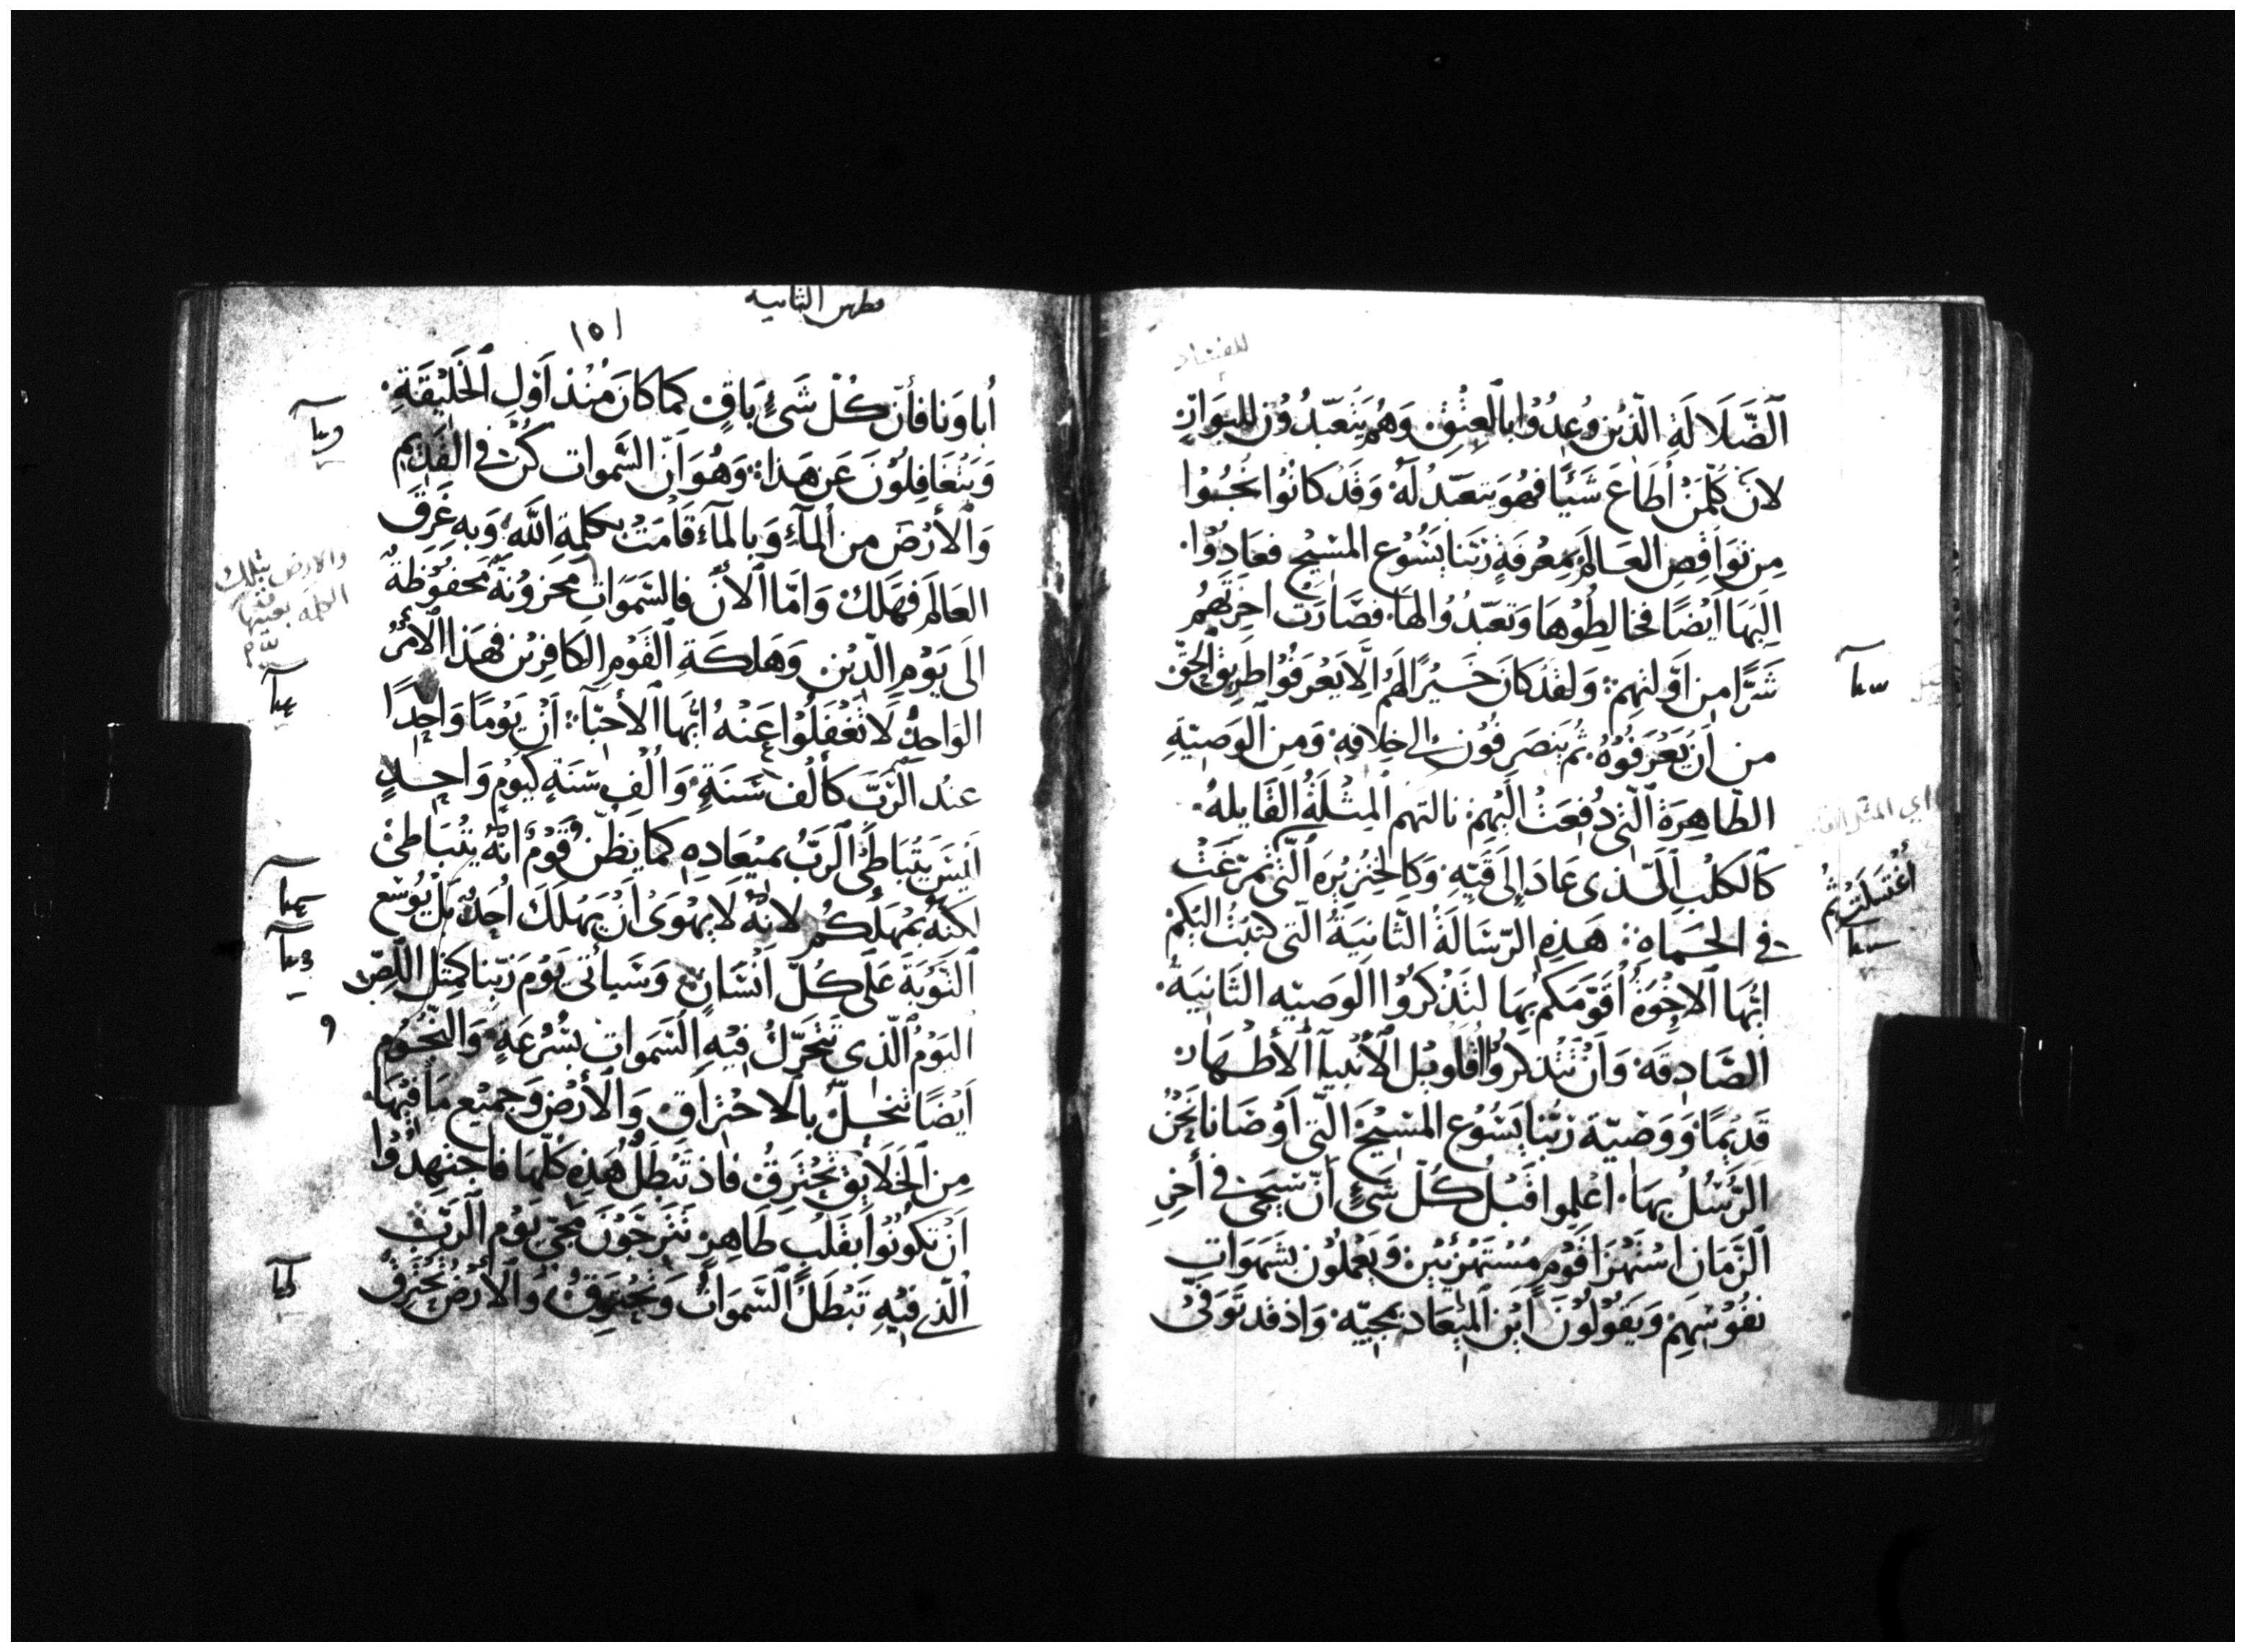 للفساد
ٱلضَّلَالَةِ الَّذِيْنَ وُعِدُوْا بِالْعِتْقِ. وَهُم يَتَعَبَّدُوْنَ لِلبَوَارِ
لانَ كُلَّمَنْ أَطَاعَ شَيْئًا فهُوَ يتعبّدُ لَهُ. وَقَدْ كانُوا نَجُوْا
مِن نَوَاقِصِ العَالَمِ بِمِعْرفَةِ رَبّنا يَسُوْع المسِيْح فعَادُوْا.
اِلَيْهَا اَيْضًا فخالطُوْهَا وَتعَبّدُوْا لهَا. فصَارَت اٰخِرَتهُم
شَرًّا مِن اَوّلتهِم: وَلقَدْ كانَ خَيْرًا لَهُم اَلَّا يَعْرفُوْا طَرِيْقَ الحَقّ
من اَنْ يَعْرَفُوْهُ. ثُم يَنصَرِفُون اِلى خِلافِهِ. وَمِنَ الوَصيّةِ
الطّاهِرَةِ الّتي دُفِعَتْ اِلَيْهِمْ. نالتهم المِثْلَةُ القَايلهُ.
كَالكَلْبِ الّذى عَادَ اِلى قَيّهِ. وَكَالخِنْزِيْرَه الّتى تمرّغَتْ
اغْتَسَلَتْ ثُم
في الحَمَاةِ: هَذِهِ الرّسَالَةُ الثّانِيَةُ الّتى كتبْتُ اليْكُمْ
ايُّهَا الاخْوَةُ اُقَوّمَكم بِهَا لتَذْكرُوْا الوَصيّه الثَانِيَهُ.
الصَّادِقَةَ. وَاَنْ تَتذكرُوْا اقَاوِيْل الأنْبيآ الأطهَار
قَدِيْمًا وَوَصيّة رَبّنا يَسُوْع المسِيْح الّتي اَوْصَانا نَحْنُ
الرّسُلُ بهَا. اعْلموا قَبْل كُلّ شَيْءٍ اَنّ سَيَجي في أخِرِ
الزّمَانِ اسْتهْزَا قَوْمٍ مُسْتَهْزِئيْن. وَيَعْملوْن بشَهوَات
نفُوْسهِمْ وَيَقُوْلُوْنَ اَيْن المِيْعَاد بمجيّه. وَاذ قد تَوَفّىْ
بطرس الثانيه
١٥١
اُباوَنا فأنّ كُلّ شَيْءٍ بَاقٍ كَما كانَ مُنْذ اَوّلِ الخَلِيْقَةِ.
وَيَتغَافِلُوْنَ عَن هَذا: وَهُوَ اَنّ السّموات كنّ في القَدِيْم
وَالأرْضَ من المآءِ وَبالمآءِ قَامَتْ بكلِمةِ اللّه. وَبه غَرِقَ
العَالم فهَلكْ. وَامّا الاٰنَ فالسّمَوَات مَخزُوْنَة مَحفُوْظةٌ
والارض بتلك
الكلمة بعينها
الَى يَوْمِ الدّيْن. وَهَلكَةِ القَوْمِ الكافِريْن. فهَذا الأمْرُ
الوَاحِدُ لَا تغْفَلُوْا عَنْهُ ايُّهَا الأحِبّآء: اَنّ يَوْمًا وَاحِدًا
عنْد الرَّبّ كألف سَنَةٍ. وَألْفِ سَنَةٍ كيَوْمٍ وَاحِدٍ
لَيْسَ يَتَبَاطَى الرَبّ بميْعَادِه كَما يَظنّ قَوْمٌ انّهُ يتَبَاطَى
لكنّهُ يمْهلُكُم لانّهُ لَا يهْوَى اَنْ يهْلَكَ اَحَدٌ. بَلْ يُوْسّع
التّوْبَةَ عَلَى كُلّ اِنْسَانٍ وَسَيأتى يَوْمَ رَبّنا كمِثْلِ اللّصِّ
اليَوْمُ الّذى تتحَرّكُ فِيْهِ السّمَوَات بسُرْعَةٍ. وَالنّجُوْم
اَيْضًا تنحَلّ بالاحْتِرَاق. وَالأرْض وَجَميْع مَا فِيْهَا.
مِن الخَلَايِق تَحْتَرِقُ. فاذ تَبْطلُ هَذِهِ كُلّهَا فَاجْتهِدُوْا
اَنْ تكوْنُوْا بقَلبٍ طَاهِر تَتَرجّوْنَ مَجيَ يَوْم الرَّبّ
الّذي فِيْهِ تَبْطلُ السّمَوَاتُ وَتحْتَرِقُ. وَالأرْضُ تَحْتَرِقُ